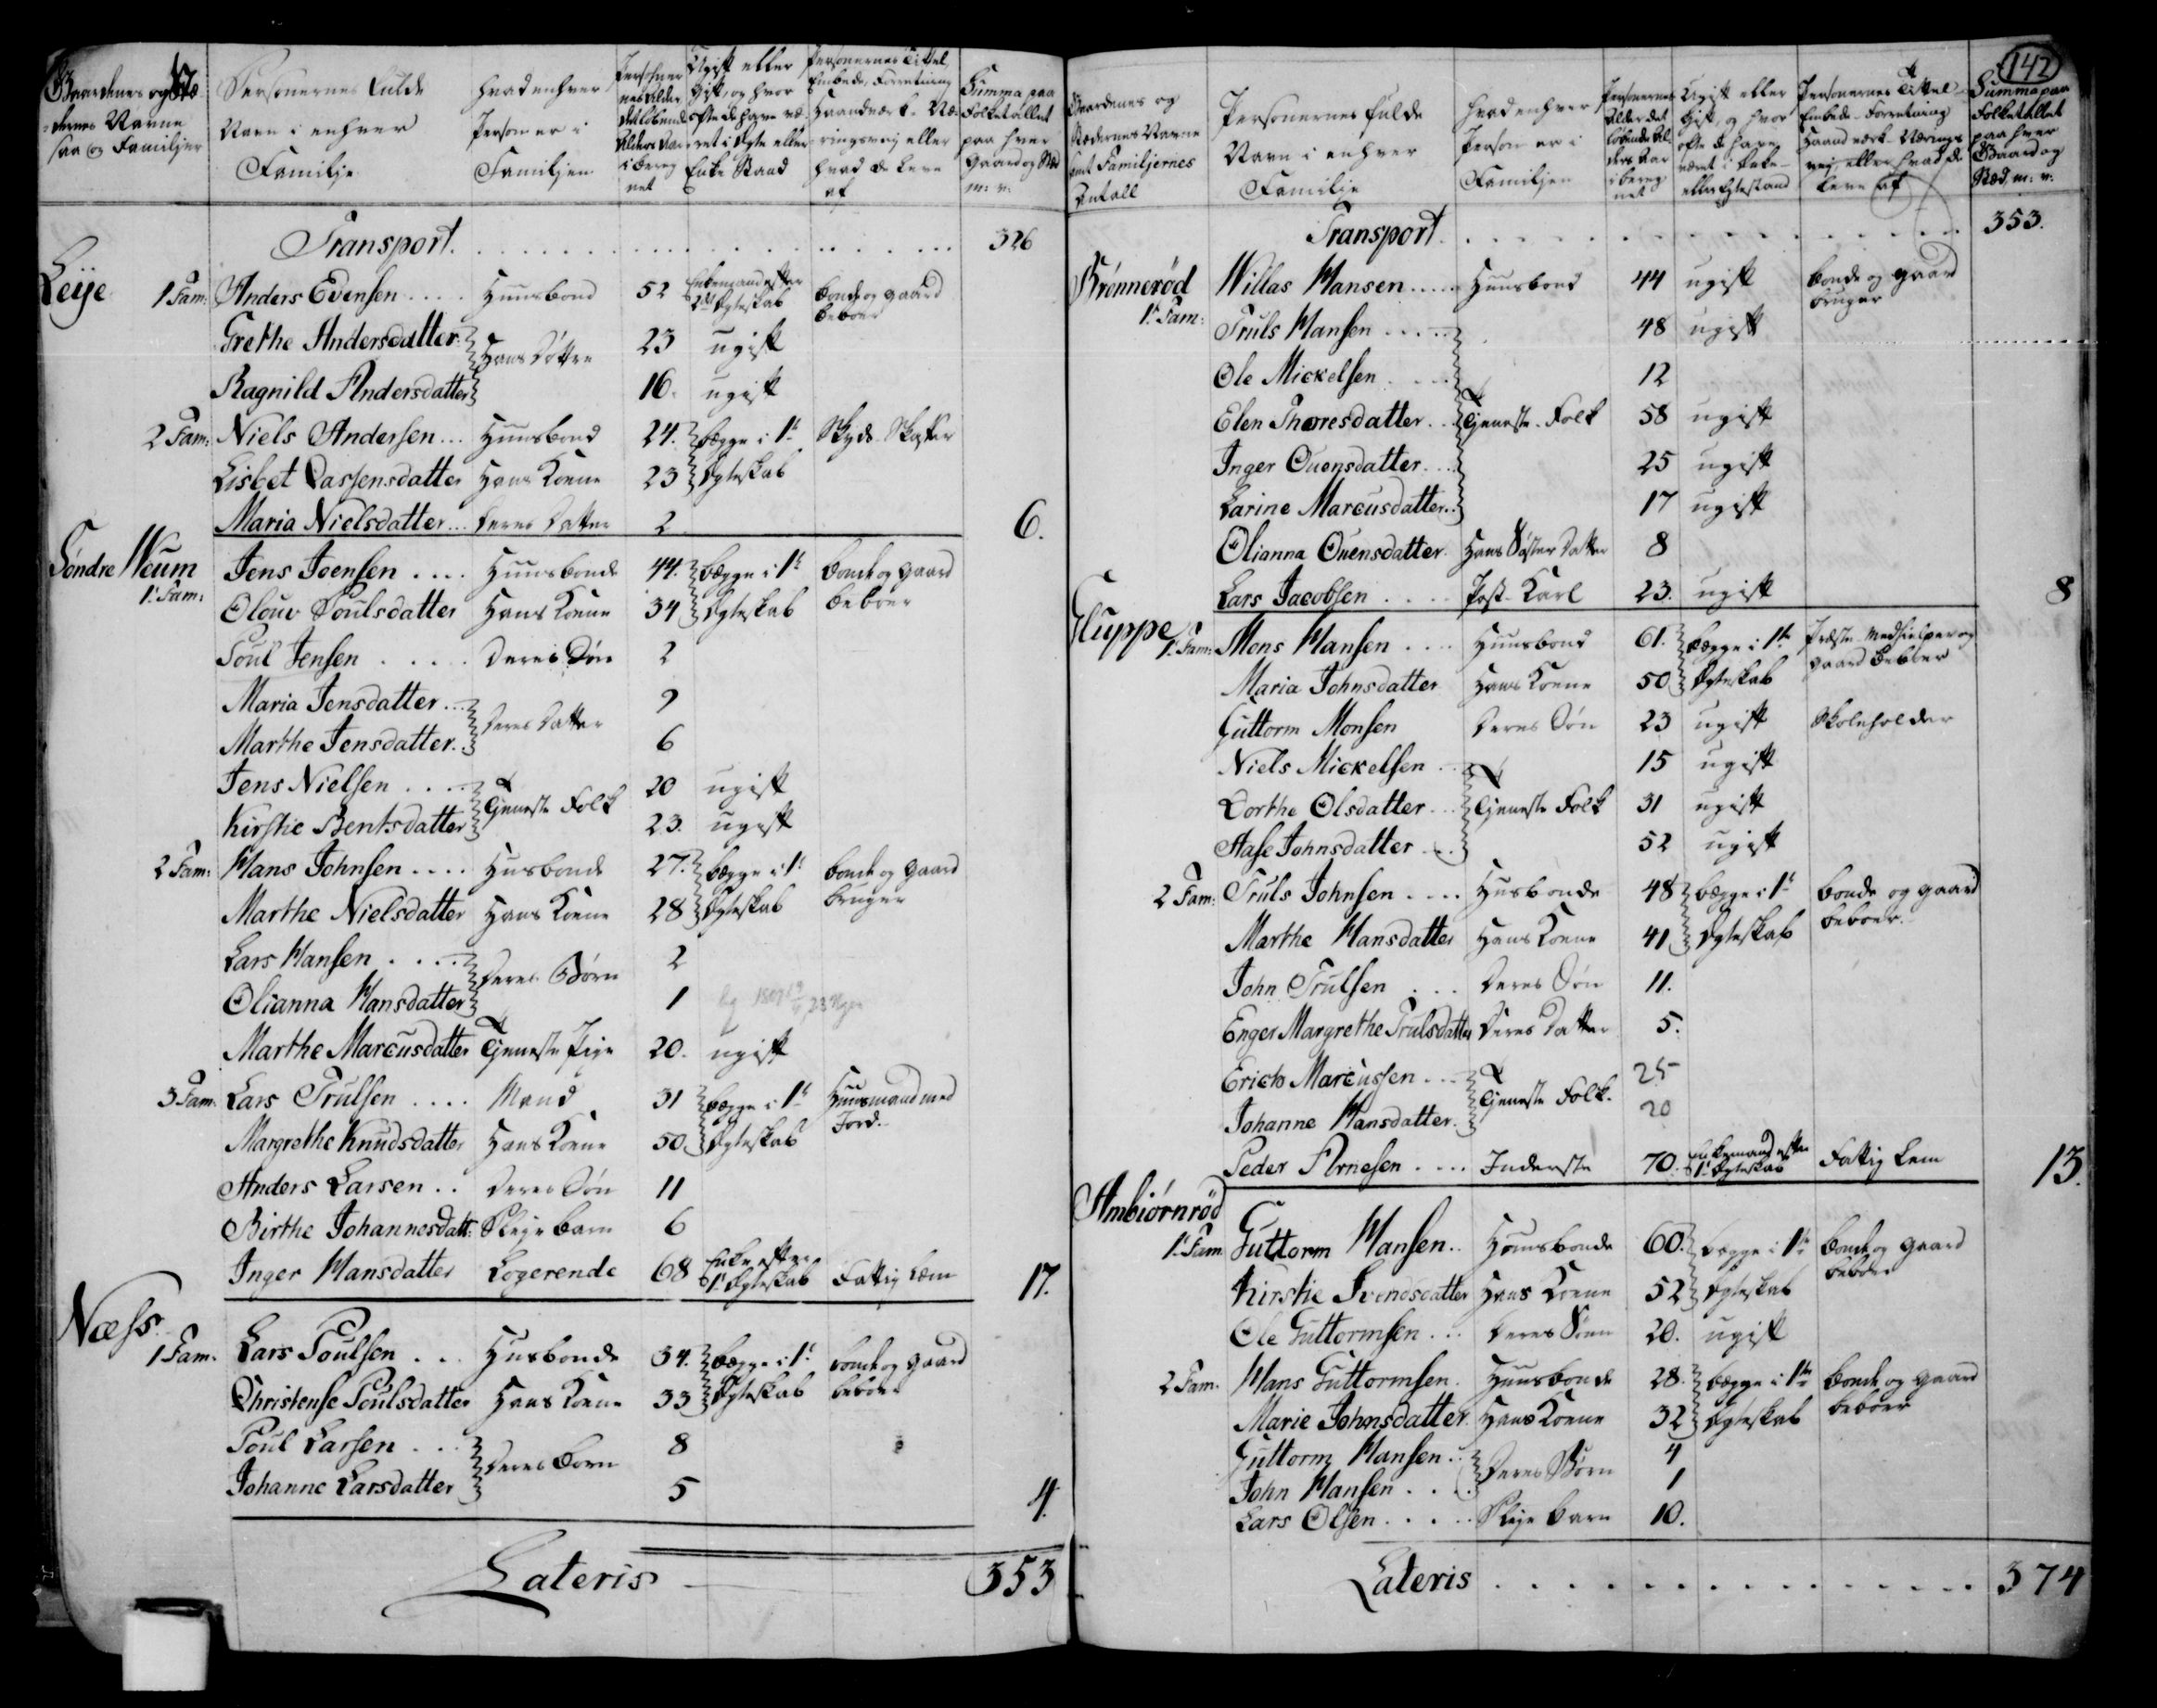 Personernes Fulde
Navn i enhver
Familie
hvad enhver
Person er i
Familien
Summa paa
Folketallet
paa hver
Gaard og Sted
Transport. 326
Leije 1 Fam: Anders Evensen .... Huusbond 52 Enkemand efter 2det Egteskab bonde og gaard beboer
Grethe Andersdatter Hans Døttre 23 ugift
Ragnild Andersdatter 16. ugift
2 Fam: Niels Andersen... Huusbond 24. begge i 1te Skyds Skaffer
Lisbet Lassensdatter Hans Kone 23 Egteskab
Maria Nielsdatter... Deres Datter 2 6.
Søndre Weum
1. Fam: Jens Joensen .... Huusbonde 44. begge i 1te bonde og gaard
Olouv Poulsdatter Hans Kone 34 Egteskab beboer
Poul Jensen ..... Deres Søn 2
Maria Jensdatter ... Deres Datter 9
Marthe Jensdatter.. 6
Jens Nielsen .... Tjeneste Folk 20 ugift
Kirstie Bentsdatter 23. ugift
2 Fam: Hans Johnsen .... Husbonde 27. begge i 1te bonde og gaard
Marthe Nielsdatter Hans Kone 28 Egteskab bruger
Lars Hansen .... Deres Børn 2
Olianna Hansdatter 1
Marthe Marcusdatter Tjeneste Pige 20. ugift
3 Fam. Lars Trulsen .... Mand 31 begge i 1te Huusmand med
Margrethe Knudsdatter Hans Kone 50. Egteskab Jord.
Anders Larsen .. Deres Søn 11
Birthe Johannesdatt: Pleje barn 6
Inger Hansdatter Logerende 68 Enke efter 1te Egteskab Fattig Lem 17.
Næss.
1 Fam. Lars Poulsen ... Husbonde 34. begge i 1te bonde og gaard
Christense Poulsdatter Hans Kone 33 Egteskab beboer
Poul Larsen ... Deres børn 8
Johanne Larsdatter 5 4.
Lateris 353
142
Gaardenes og
Stædernes Navne
samt Familjernes
Antall
Personernes fulde
Navn i enhver
Familie
hvad enhver
Person er i
Familjen
Summa paa
Folketallet
paa hver
Gaard og
Sted, m: v:
Transport. 353.
Brønnerød Willas Hansen ..... Huusbond 44 ugift bonde og gaard bruger
1. Fam:
Truls Hansen ..... 48 ugift
Ole Mickelsen .... 12
Elen Thoresdatter ... Tjeneste-Folk 58 ugift
Inger Ouensdatter .... 25 ugift
Larine Marcusdatter.. 17 ugift
Olianna Ouensdatter. Hans Søster Datter 8
Lars Jacobsen .... Post-Karl 23. ugift 8
Gluppe
1. Fam: Mons Hansen .... Huusbond 61. begge i 1te Præste-Medhielper og
Maria Johnsdatter Hans Kone 50 Egteskab gaard beboer
Guttorm Monsen Deres Søn 23 ugift Skoleholder
Niels Mickelsen ... 15 ugift
Dorthe Olsdatter ... Tjeneste Folk 31 ugift
Aase Johnsdatter .... 52 ugift
2 Fam: Truls Johnsen .... Husbonde 48 begge i 1te bonde og gaard
Marthe Hansdatter Hans Kone 41 Egteskab beboer.
John Trulsen ... Deres Søn 11.
Enger Margrethe Trulsdatter Deres Datter 5.
Erich Marcussen ... Tjeneste Folk. 25
Johanne Hansdatter. 20
Peder Arnesen .... Inderste 70. Enkemand efter 1te Egteskab Fattig Lem 13.
Ambiørnrød
1. Fam. Guttorm Hansen .. Huusbonde 60. begge i 1te bonde og gaard
Kirstie Svendsdatter Hans Kone 52 Egteskab beboer
Ole Guttormsen ... Deres Sønn 20. ugift
2 Fam. Hans Guttormsen. Huusbonde 28. begge i 1te bonde og gaard
Marie Johnsdatter. Hans Kone 32 Egteskab beboer
Guttorm Hansen .. Deres Børn 4
John Hansen ... 1
Lars Olsen ..... Pleje barn 10.
Lateris 374